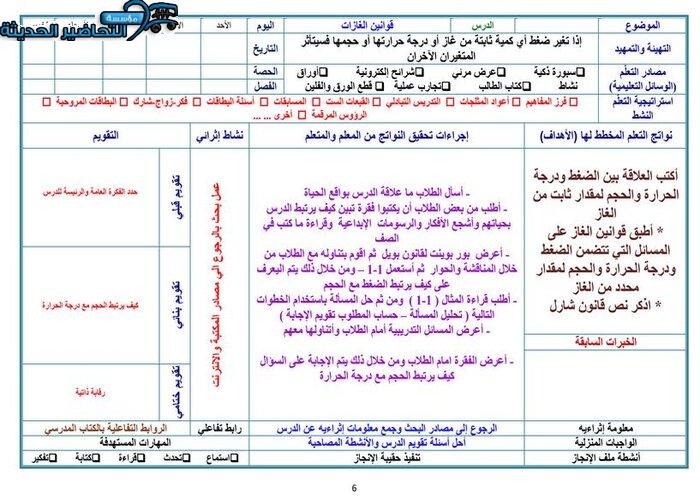 مؤسسة التحاضير الحديثة
الموضوع
الدرس
قوانين الغازات
اليوم
الأحد
التهيئة والتمهيد
إذا تغير ضغط أي كمية ثابتة من غاز أو درجة حرارتها أو حجمها فسيتأثر
المتغيران الآخران
التاريخ
مصادر التعلم
(الوسائل التعليمية)
سبورة ذكية عرض مرئي شرائح إلكترونية أوراق
نشاط كتاب الطالب تجارب عملية قطع الورق والفلين
الحصة
الفصل
استراتيجية التعلم
النشط
فرز المفاهيم أعواد المثلجات التدريس التبادلي القبعات الست المسابقات أسئلة البطاقات فكر-زواج-شارك البطاقات المروحية
الرؤوس المرقمة أخرى ... ...
نواتج التعلم المخطط لها (الأهداف)
إجراءات تحقيق النواتج من المعلم والمتعلم
نشاط إثرائي
التقويم
أكتب العلاقة بين الضغط ودرجة
الحرارة والحجم لمقدار ثابت من
الغاز
* أطبق قوانين الغاز على
المسائل التي تتضمن الضغط
ودرجة الحرارة والحجم لمقدار
محدد من الغاز
* اذكر نص قانون شارل
الخبرات السابقة
- أسأل الطلاب ما علاقة الدرس بواقع الحياة
- أطلب من بعض الطلاب أن يكتبوا فقرة تبين كيف يرتبط الدرس
بحياتهم وأشجع الأفكار والرسومات الإبداعية وقراءة ما كتب في
الصف
- أعرض بور بوينت لقانون بويل ثم اقوم بتناوله مع الطلاب من
خلال المناقشة والحوار ثم أستعمل 1-1 – ومن خلال ذلك يتم اليعرف
على كيف يرتبط الضغط مع الحجم
- أطلب قراءة المثال ( 1-1 ) ومن ثم حل المسألة باستخدام الخطوات
التالية ( تحليل المسألة – حساب المطلوب تقويم الإجابة )
- أعرض المسائل التدريبية أمام الطلاب وأتناولها معهم
- أعرض الفقرة امام الطلاب ومن خلال ذلك يتم الإجابة على السؤال
كيف يرتبط الحجم مع درجة الحرارة
عمل بحث بالرجوع الي مصادر المكتبة والانترنت
تقويم قبلي
حدد الفكرة العامة والرئيسة للدرس
تقويم بنائي
كيف يرتبط الحجم مع درجة الحرارة
تقويم ختامي
رقابة ذاتية
معلومة إثراءيه
الرجوع إلى مصادر البحث وجمع معلومات إثراءيه عن الدرس
رابط تفاعلي
الروابط التفاعلية بالكتاب المدرسي
الواجبات المنزلية
أحل أسئلة تقويم الدرس والأنشطة المصاحبة
المهارات المستهدفة
أنشطة ملف الإنجاز
تنفيذ حقيبة الإنجاز
استماع تحدث قراءة كتابة تفكير
6